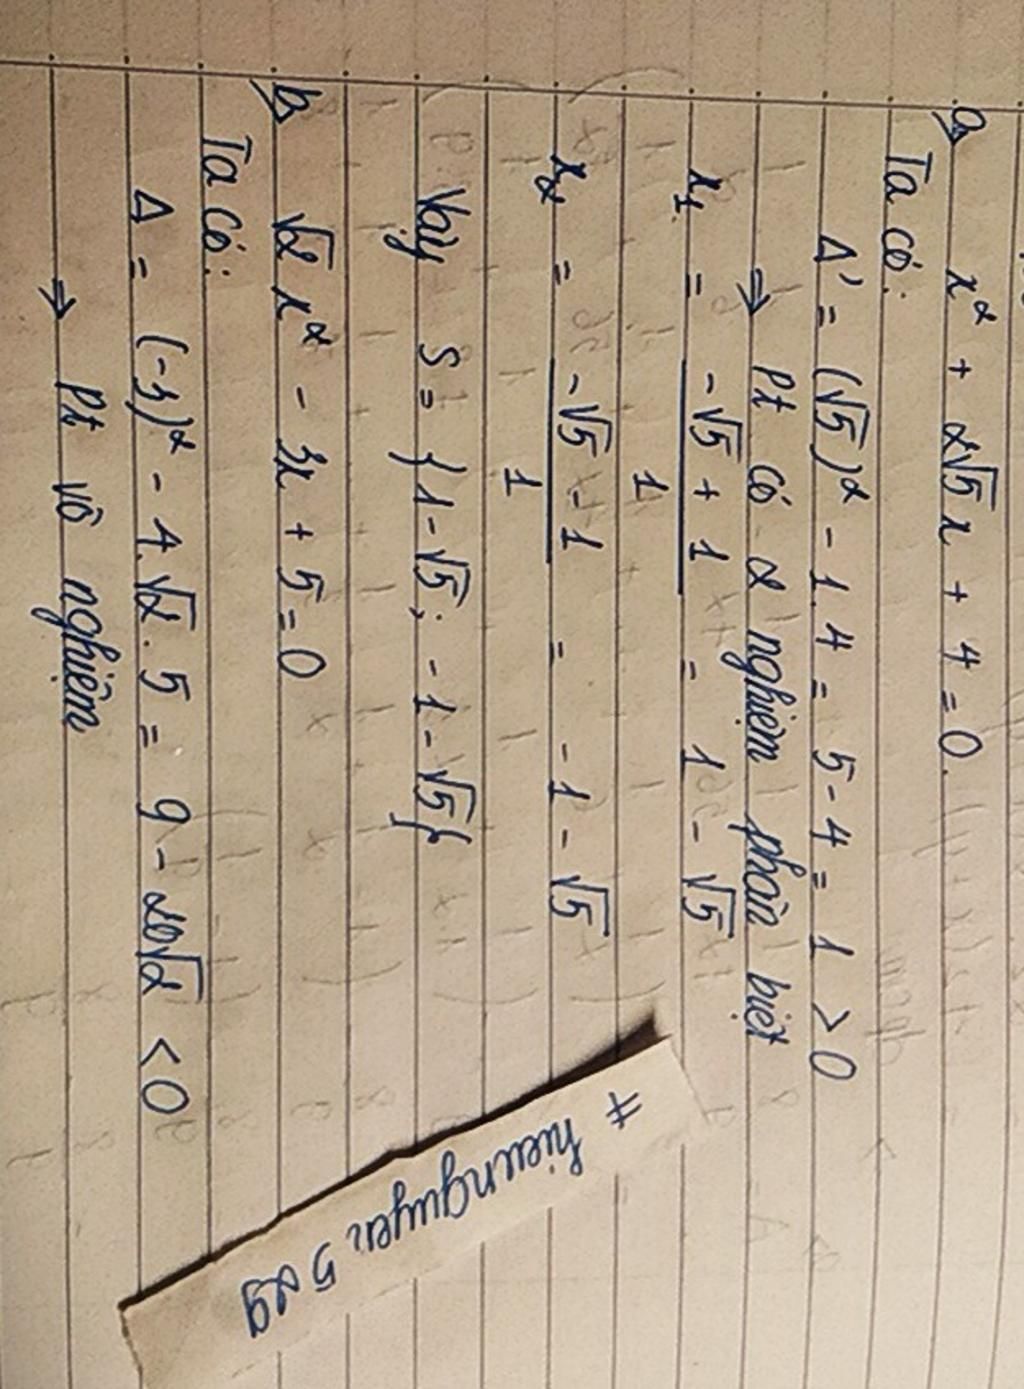 a, x² + 2√5x + 4 = 0.
Ta có:
Δ' = (√5)² - 1.4 = 5 - 4 = 1 > 0
→ Pt có 2 nghiệm phân biệt
x₁ = (-√5 + 1)/1 = 1 - √5
x₂ = (-√5 - 1)/1 = -1 - √5
Vậy S = {1-√5; -1-√5}
b, √2 x² - 3x + 5 = 0
Ta có:
Δ = (-3)² - 4.√2.5 = 9 - 20√2 < 0
→ Pt vô nghiệm
# hieunguyen 529